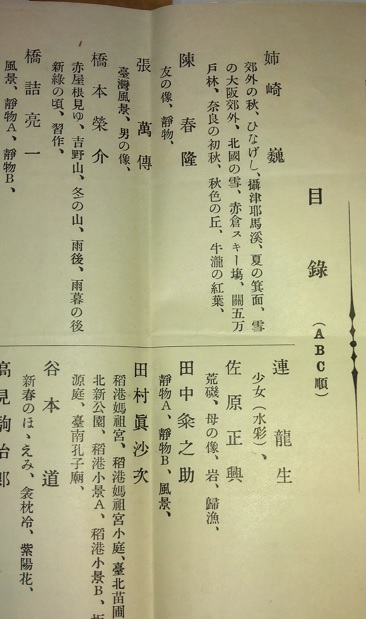 目錄（ABC順）
姉崎巍
郊外の秋、ひなげし、攝津耶馬溪、夏の箕面、雪
の大阪郊外、北國の雪、赤倉スキー塲、關五万
戶林、奈良の初秋、秋色の丘、牛瀧の紅葉、
陳春隆
友の像、靜物、
張萬傳
臺灣風景、男の像、
橋本榮介
赤屋根見ゆ、吉野山、冬の山、雨後、雨暮の後
新綠の頃、習作、
橋詰亮一
風景、靜物A、靜物B、
連龍生
少女（水彩）、
佐原正興
荒磯、母の像、岩、歸漁、
田中粂之助
靜物A、靜物B、風景、
田村眞沙次
稻港媽祖宮、稻港媽祖宮小庭、臺北苗圃
北新公園、稻港小景A、稻港小景B、
源庭、臺南孔子廟、
谷本道
新春のほゝえみ、衾枕冷、紫陽花、
高見駒治郎